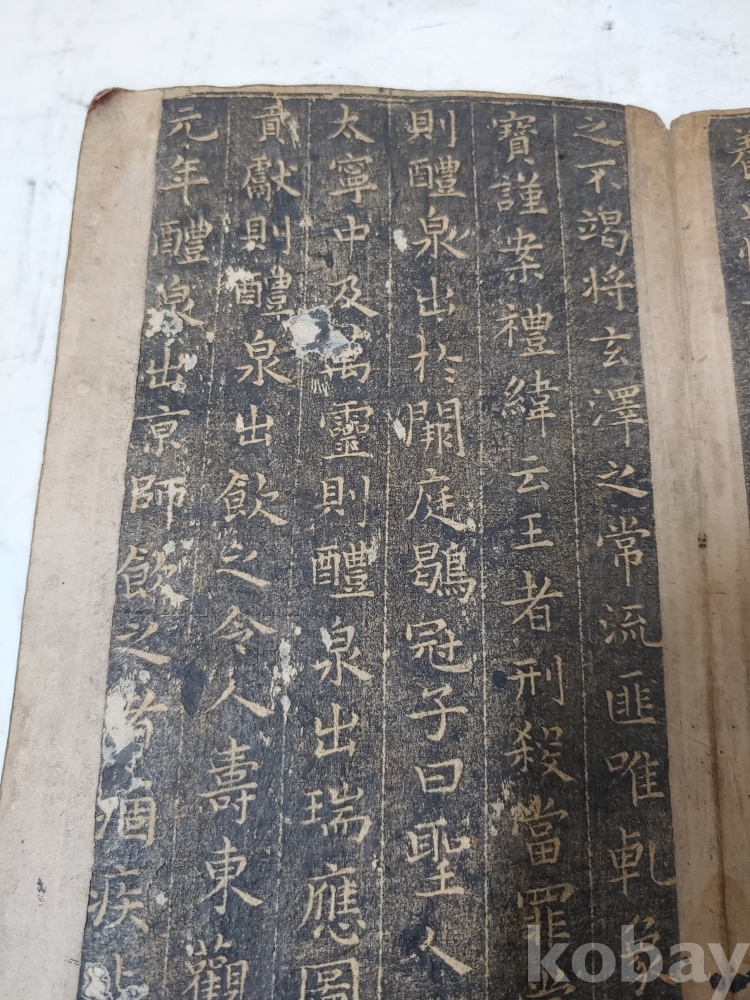 之不竭将玄澤之常流匪唯乹象
寶謹案禮緯云王者刑殺當罪當
則醴泉出於闕庭鶡冠子曰聖人
太寧中及萬靈則醴泉出瑞應圖
貢獻則醴泉出飲之令人壽東觀
元年醴泉出京師飲之者痼疾
kobay